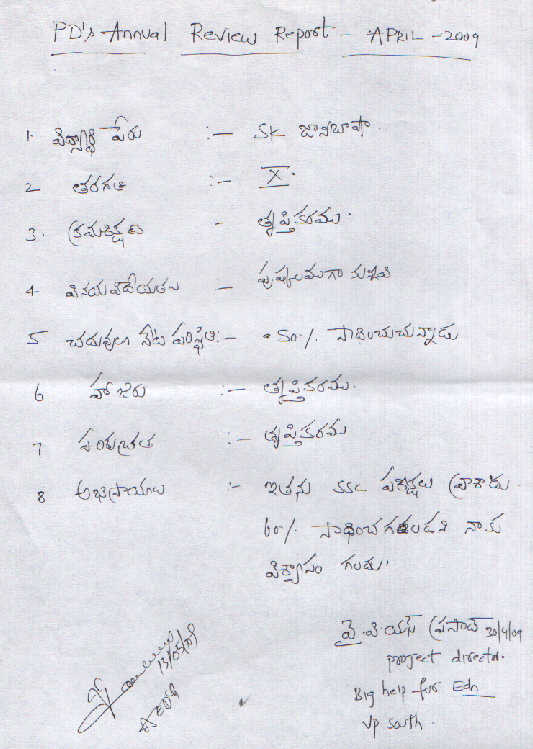 PD's Annual Review Report - APRIL - 2009
1. విద్యార్థి పేరు :- SK జానీబాషా.
2 తరగతి :- X.
3. క్రమశిక్షణ - తృప్తికరము.
4. వినయవిధేయతలు - పుష్కలముగా కలవు
5 చదువులో నేటి పరిస్థితి:- 50% సాధించుచున్నాడు
6 హాజరు :- తృప్తికరము.
7 పరిశుభ్రత :- తృప్తికరము
8 అభిప్రాయాలు :- ఇతను SSC పరీక్షలు వ్రాశాడు.
60% సాధించగలడని నాకు
విశ్వాసం గలదు.
వై.వి.యస్ ప్రసాద్ 30/4/09
project director.
Big help for Edn
Vp south.
13/05/09